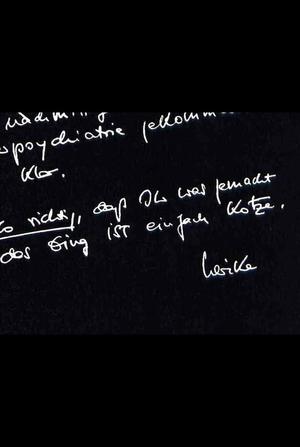 psychiatrie
Klo.
so richtig, daß Ihr was gemacht
das Ding ist einfach Kotze.